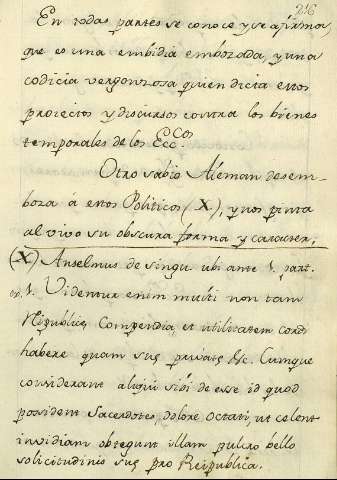 216
En todas partes se conoce, y se afirma,
que es una embidia embozada, y una
codicia vergonzosa quien dicta estos
proiectos y discursos contra los bienes
temporales de los Ecc.cos
Otro sabio Aleman desem-
boza á estos Politicos (X), y nos pinta
al vivo su obscura forma y caracter,
(X) Anselmus de singu ubi ante 1. part.
1. Videntur enim multi non tam
Reipublicę Compendia et utilitatem cordi
habere quam suę privatę &c. Cumque
considerant sibi de esse id quod
possident Sacerdotes, dolore, ut celent
invidiam obtegunt illam pulcro bello
solicitudinis suę pro Reipublica.